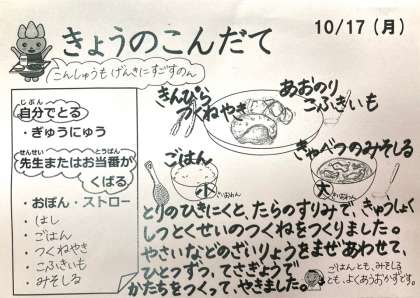 きょうのこんだて
10/17(月)
こんしゅうも げんきにすごすのん
自分でとる
じぶん
・ぎゅうにゅう
先生またはお当番が
せんせい とうばん
くばる
・おぼん・ストロー
・はし
・ごはん
・つくねやき
・こふきいも
・みそしる
きんぴら
つくねやき
あおのり
こふきいも
ごはん
小
さいおわん
きゃべつのみそしる
大
さいおわん
とりのひきにくと、たらのすりみで、きゅうしょく
しつとくせいのつくねをつくりました。
やさいなどのざいりょうをまぜあわせて、
ひとつずつ、てさぎょうで
かたちをつくって、やきました。
ごはんとも、みそしる
とも、よくあうおかずです。